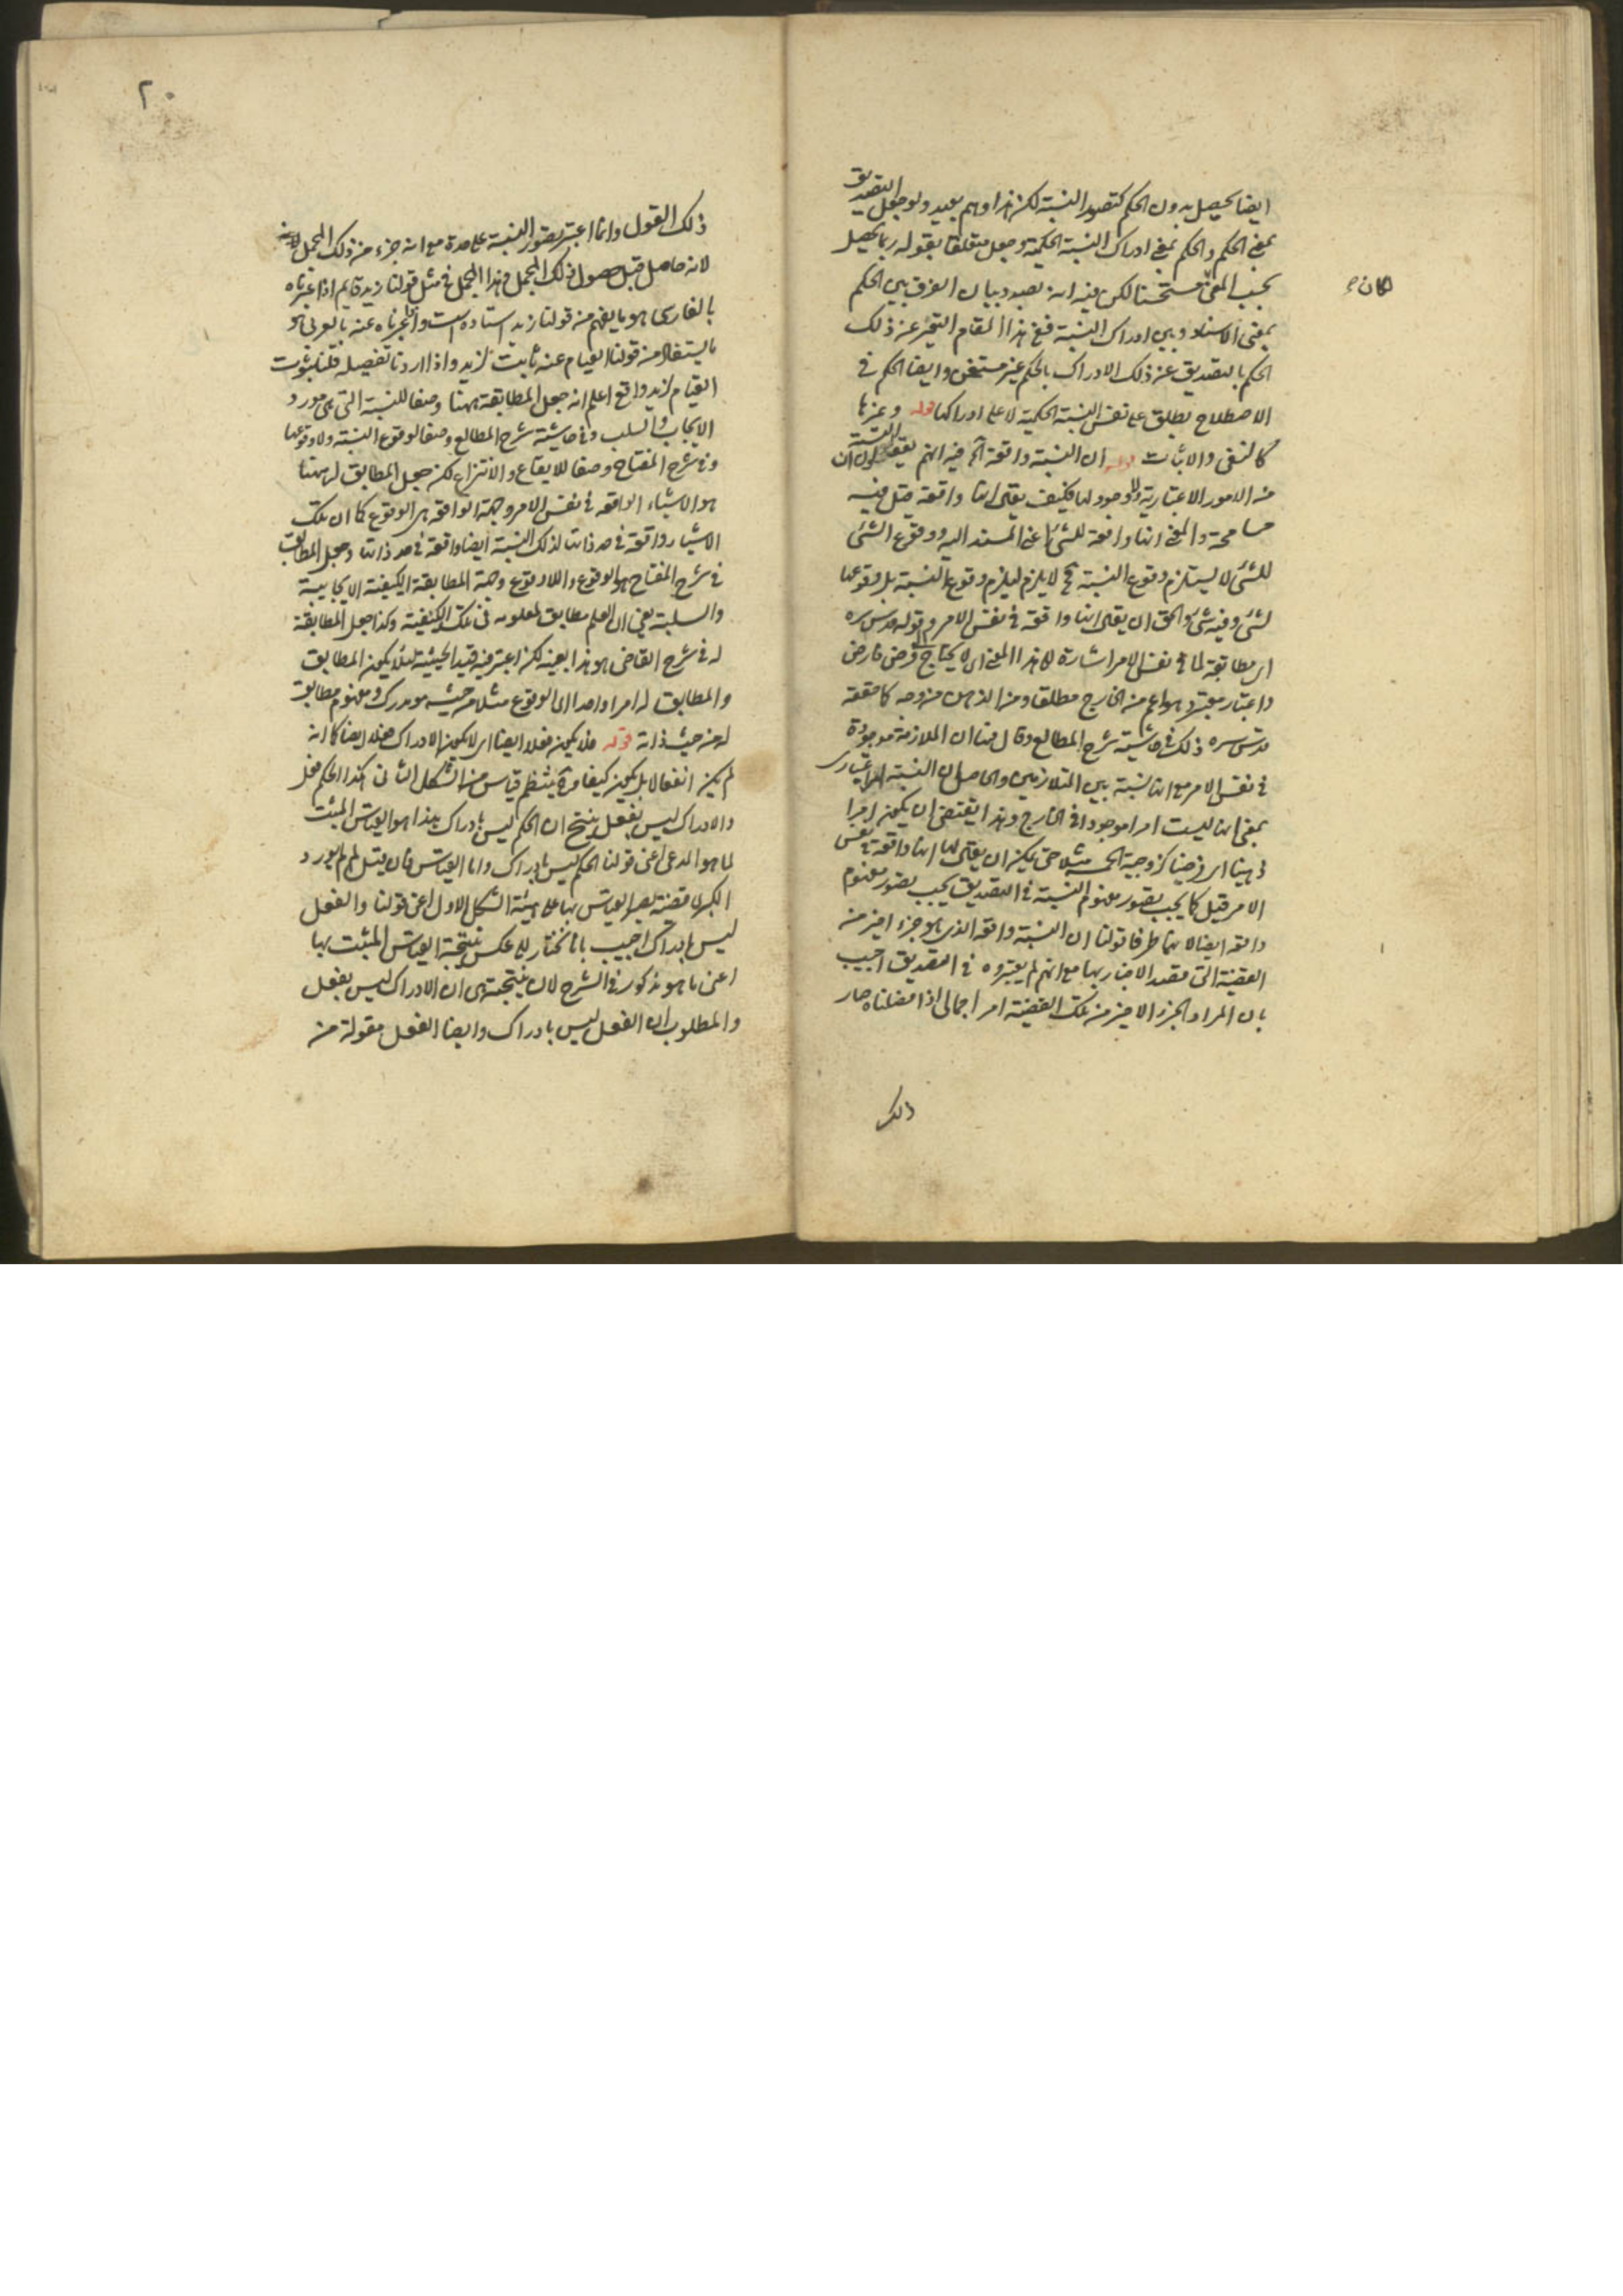 ايضا يحصل بدون الحكم كتصور النسبة لكن هذا وهم بعيد ولو جعل التصديق
بمعنى الحكم والحكم بمعنى ادراك النسبة الحكمية وجعل متعلقا بقوله ربما يحصل
بحسب المعنى مستحسنا لكن فيه انه بصدد بيان الفرق بين الحكم
لكان ء
بمعنى الاسناد وبين ادراك النسبة ففي هذا المقام التعبير عن ذلك
الحكم بالتصديق عن ذلك الادراك بالحكم غير مستحسن وايضا الحكم في
الاصطلاح يطلق على نفس النسبة الحكمية لا على ادراكها قوله وغيرها
كالنفي والاثبات قوله ان النسبة واقعة آه فيه انهم يقولون ان النسبة
من الامور الاعتبارية ولا وجود لها فكيف يقال انها واقعة قيل فيه
مسامحة والمعنى انها واقعة للشئ اعني المسند اليه ووقوع الشئ
للشئ لا يستلزم وقوع النسبة لا يلزم وقوع النسبة بل وقوعها
لشئ وفيه شئ والحق ان يقال انها واقعة في نفس الامر وقوله قدس سره
اى مطابقة لما في نفس الامر اشارة الى هذا المعنى اى لا يحتاج الى فرض فارض
واعتبار معتبر وهو اعم من الخارج مطلقا ومن الذهن من وجه كما حققه
قدس سره ذلك في حاشية شرح المطالع وقال هنا ان الملازمة موجودة
في نفس الامر مع انها نسبة بين المتلازمين والحاصل ان النسبة امر اعتبارى
بمعنى انها ليست امرا موجودا في الخارج وهذا يقتضى ان يكون امرا
ذهنيا اى فرضيا كزوجية الخمسة مثلا حتى يمكن ان يقال لها انها واقعة في نفس
الامر قيل كما يجب تصور مفهوم النسبة في التصديق يجب تصور مفهوم
واقعة ايضا لانهما طرفا قولنا ان النسبة واقعة الذى هو جزء اخير من
القضية التى قصد الاخبار بها مع انهم لم يعتبروه في التصديق اجيب
بان المراد بالجزء الاخير من تلك القضية امر اجمالى اذا فصلناه صار
ذلك
٢٠
ذلك القول وانما اعتبر تصور النسبة على حدة مع انه جزء من ذلك المجمل
لانه حاصل قبل حصول ذلك المجمل وهذا المجمل في مثل قولنا زيد قايم اذا عبرناه
بالفارسى هو ما يفهم من قولنا زيد استاده است واذا عبرناه عنه بالعربى هو
ما يستفاد من قولنا القيام عنه ثابت لزيد واذا اردنا تفصيله قلنا ثبوت
القيام لزيد واقع اعلم انه جعل المطابقة ههنا وصفا للنسبة التى هى مورد
الايجاب والسلب وفي حاشية شرح المطالع وصفا لوقوع النسبة ولا وقوعها
وفي شرح المفتاح وصفا للايقاع والانتزاع لكن جعل المطابق له ههنا
هو الاشياء الواقعة في نفس الامر وجهة الواقعة هى الوقوع كما ان تلك
الاشياء واقعة في حد ذاتها لذلك النسبة ايضا واقعة في حد ذاتها وجعل المطابق
في شرح المفتاح هو الوقوع واللاوقوع وجهة المطابقة الكيفية الايجابية
والسلبية يعنى ان العلم مطابق لمعلومه في تلك الكيفية وكذا جعل المطابقة
له في شرح القاضى هو هذا بعينه لكن اعتبر فيه قيد الحيثية لئلا يكون المطابق
والمطابق له امرا واحدا اى الوقوع مثلا من حيث هو مدرك ومفهوم مطابق
له من حيث ذاته قوله فلا يكون فعلا ايضا اى لا يكون الادراك فعلا ايضا كما انه
لم يكن انفعالا بل يكون كيفا فح ينتظم قياس من الشكل الثانى هكذا الحكم فعل
والادراك ليس بفعل ينتج ان الحكم ليس بادراك هذا هو القياس المثبت
لما هو المدعى اعنى قولنا الحكم ليس بادراك واما القياس فان قيل لم لم يورد
الكبرى قضية يصير القياس بها على هيئة الشكل الاول اعنى قولنا والفعل
ليس بادراك اجيب بانا نختار للعكس نتيجة القياس المثبت بها
اعنى ما هو مذكور في الشرح لان نتيجته هى ان الادراك ليس بفعل
والمطلوب ان الفعل ليس بادراك وايضا الفعل مقولة من